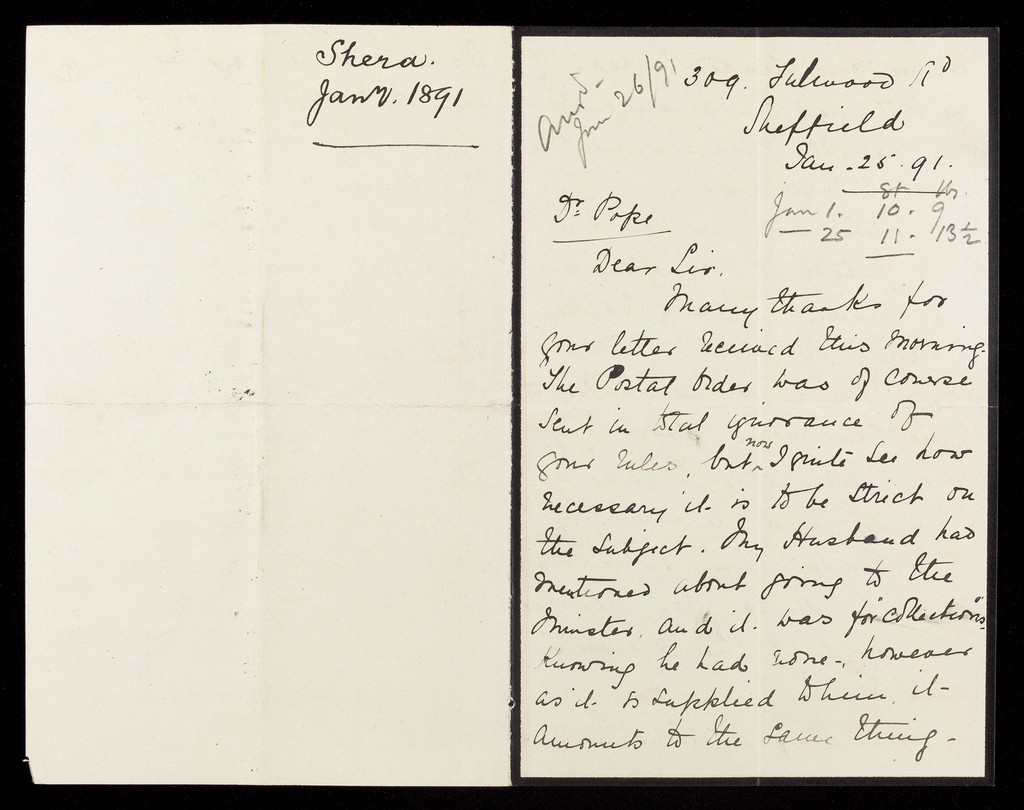 Shera.
Jany. 1891
ansd
Jan 26/91
309. Fulwood Rd
Sheffield
Jan - 25. 91.
st lbs.
Jan 1. 10. 9
— 25 11. 13 1/2
Dr. Pope
Dear Sir.
Many thanks for
your letter received this morning.
The Postal Order was of course
sent in total ignorance of
your rules, but now I quite see how
necessary it is to be strict on
the subject. My Husband had
mentioned about going to the
Minster. and it was for "collections".
Knowing he had none -, however
as it is supplied to him, it
amounts to the same thing -